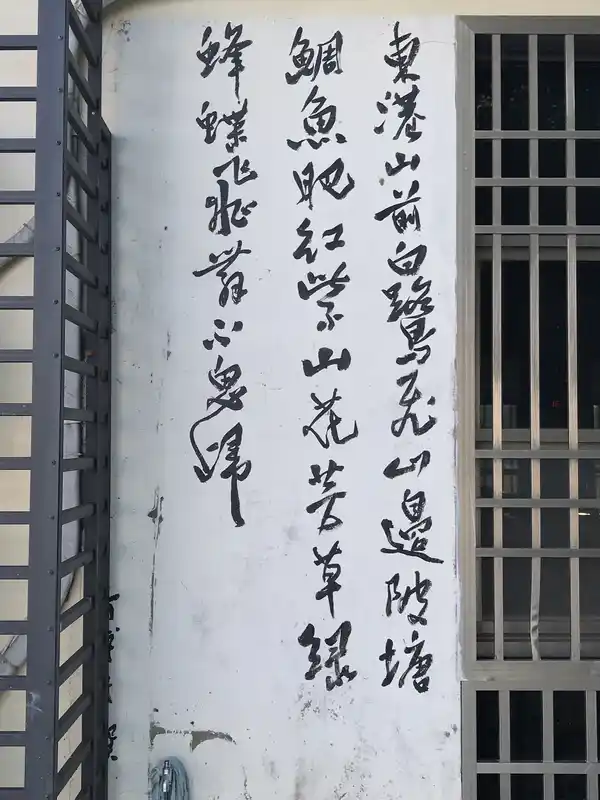 東港山前白鷺飛山邊陂塘
鯛魚肥紅紫山花芳草綠
蜂蝶飛舞不思歸